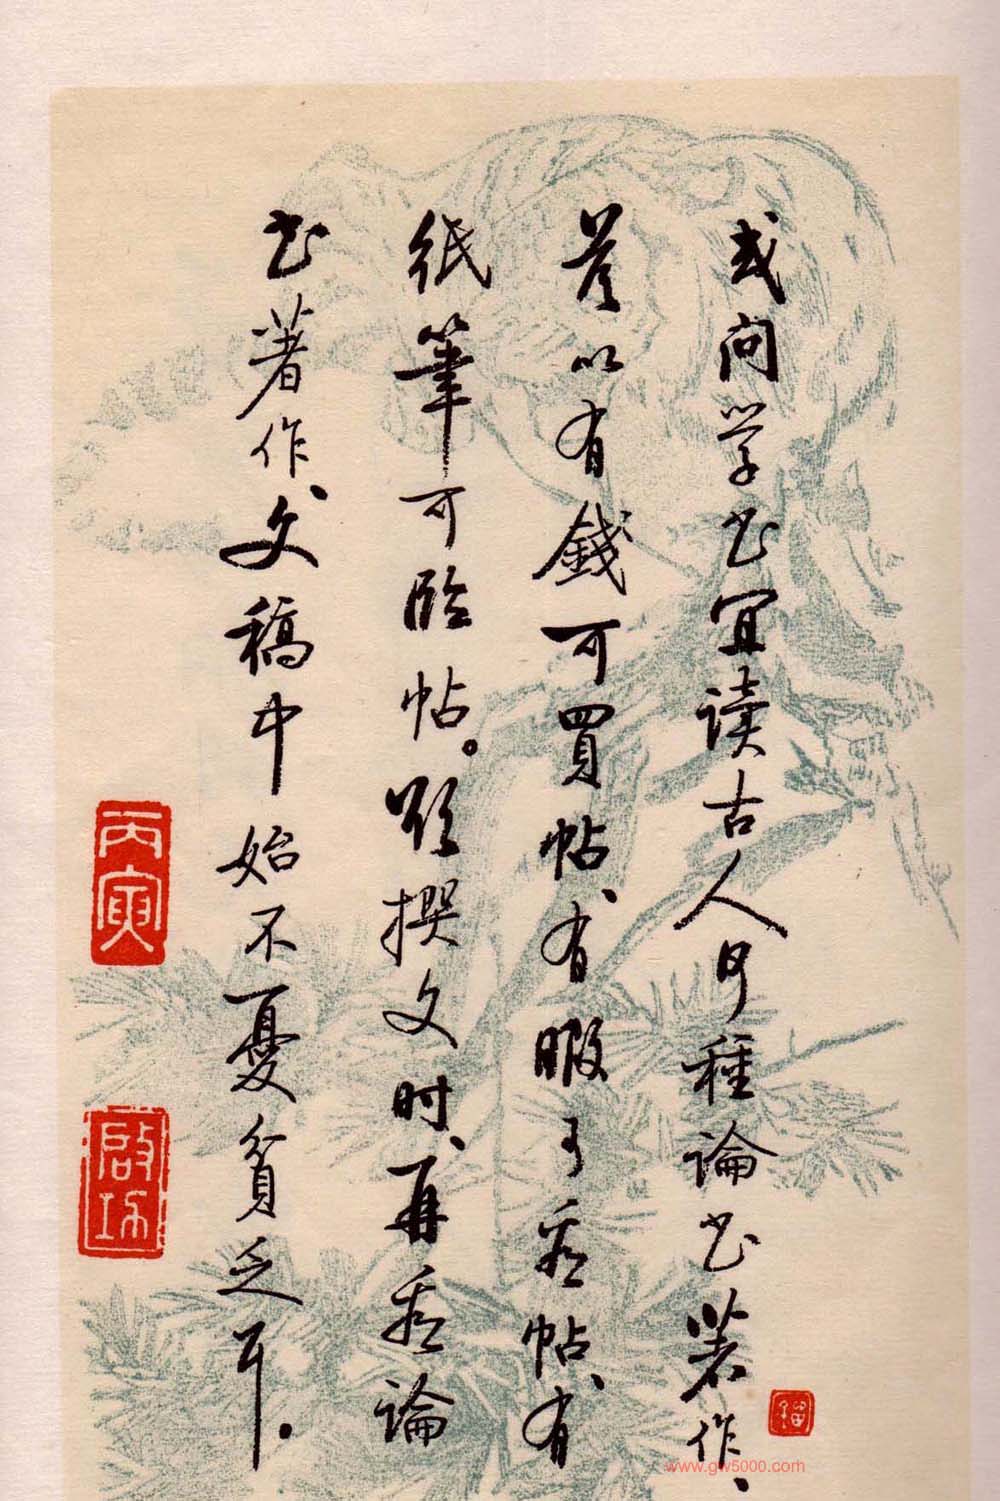 或问学书宜读古人何种論书著作、
答以有錢可買帖、有暇可看帖、有
纸筆可临帖。欲撰文时、再看論
书著作、文稿中始不憂貧乏耳。
丙寅
啟功
www.gw5000.com